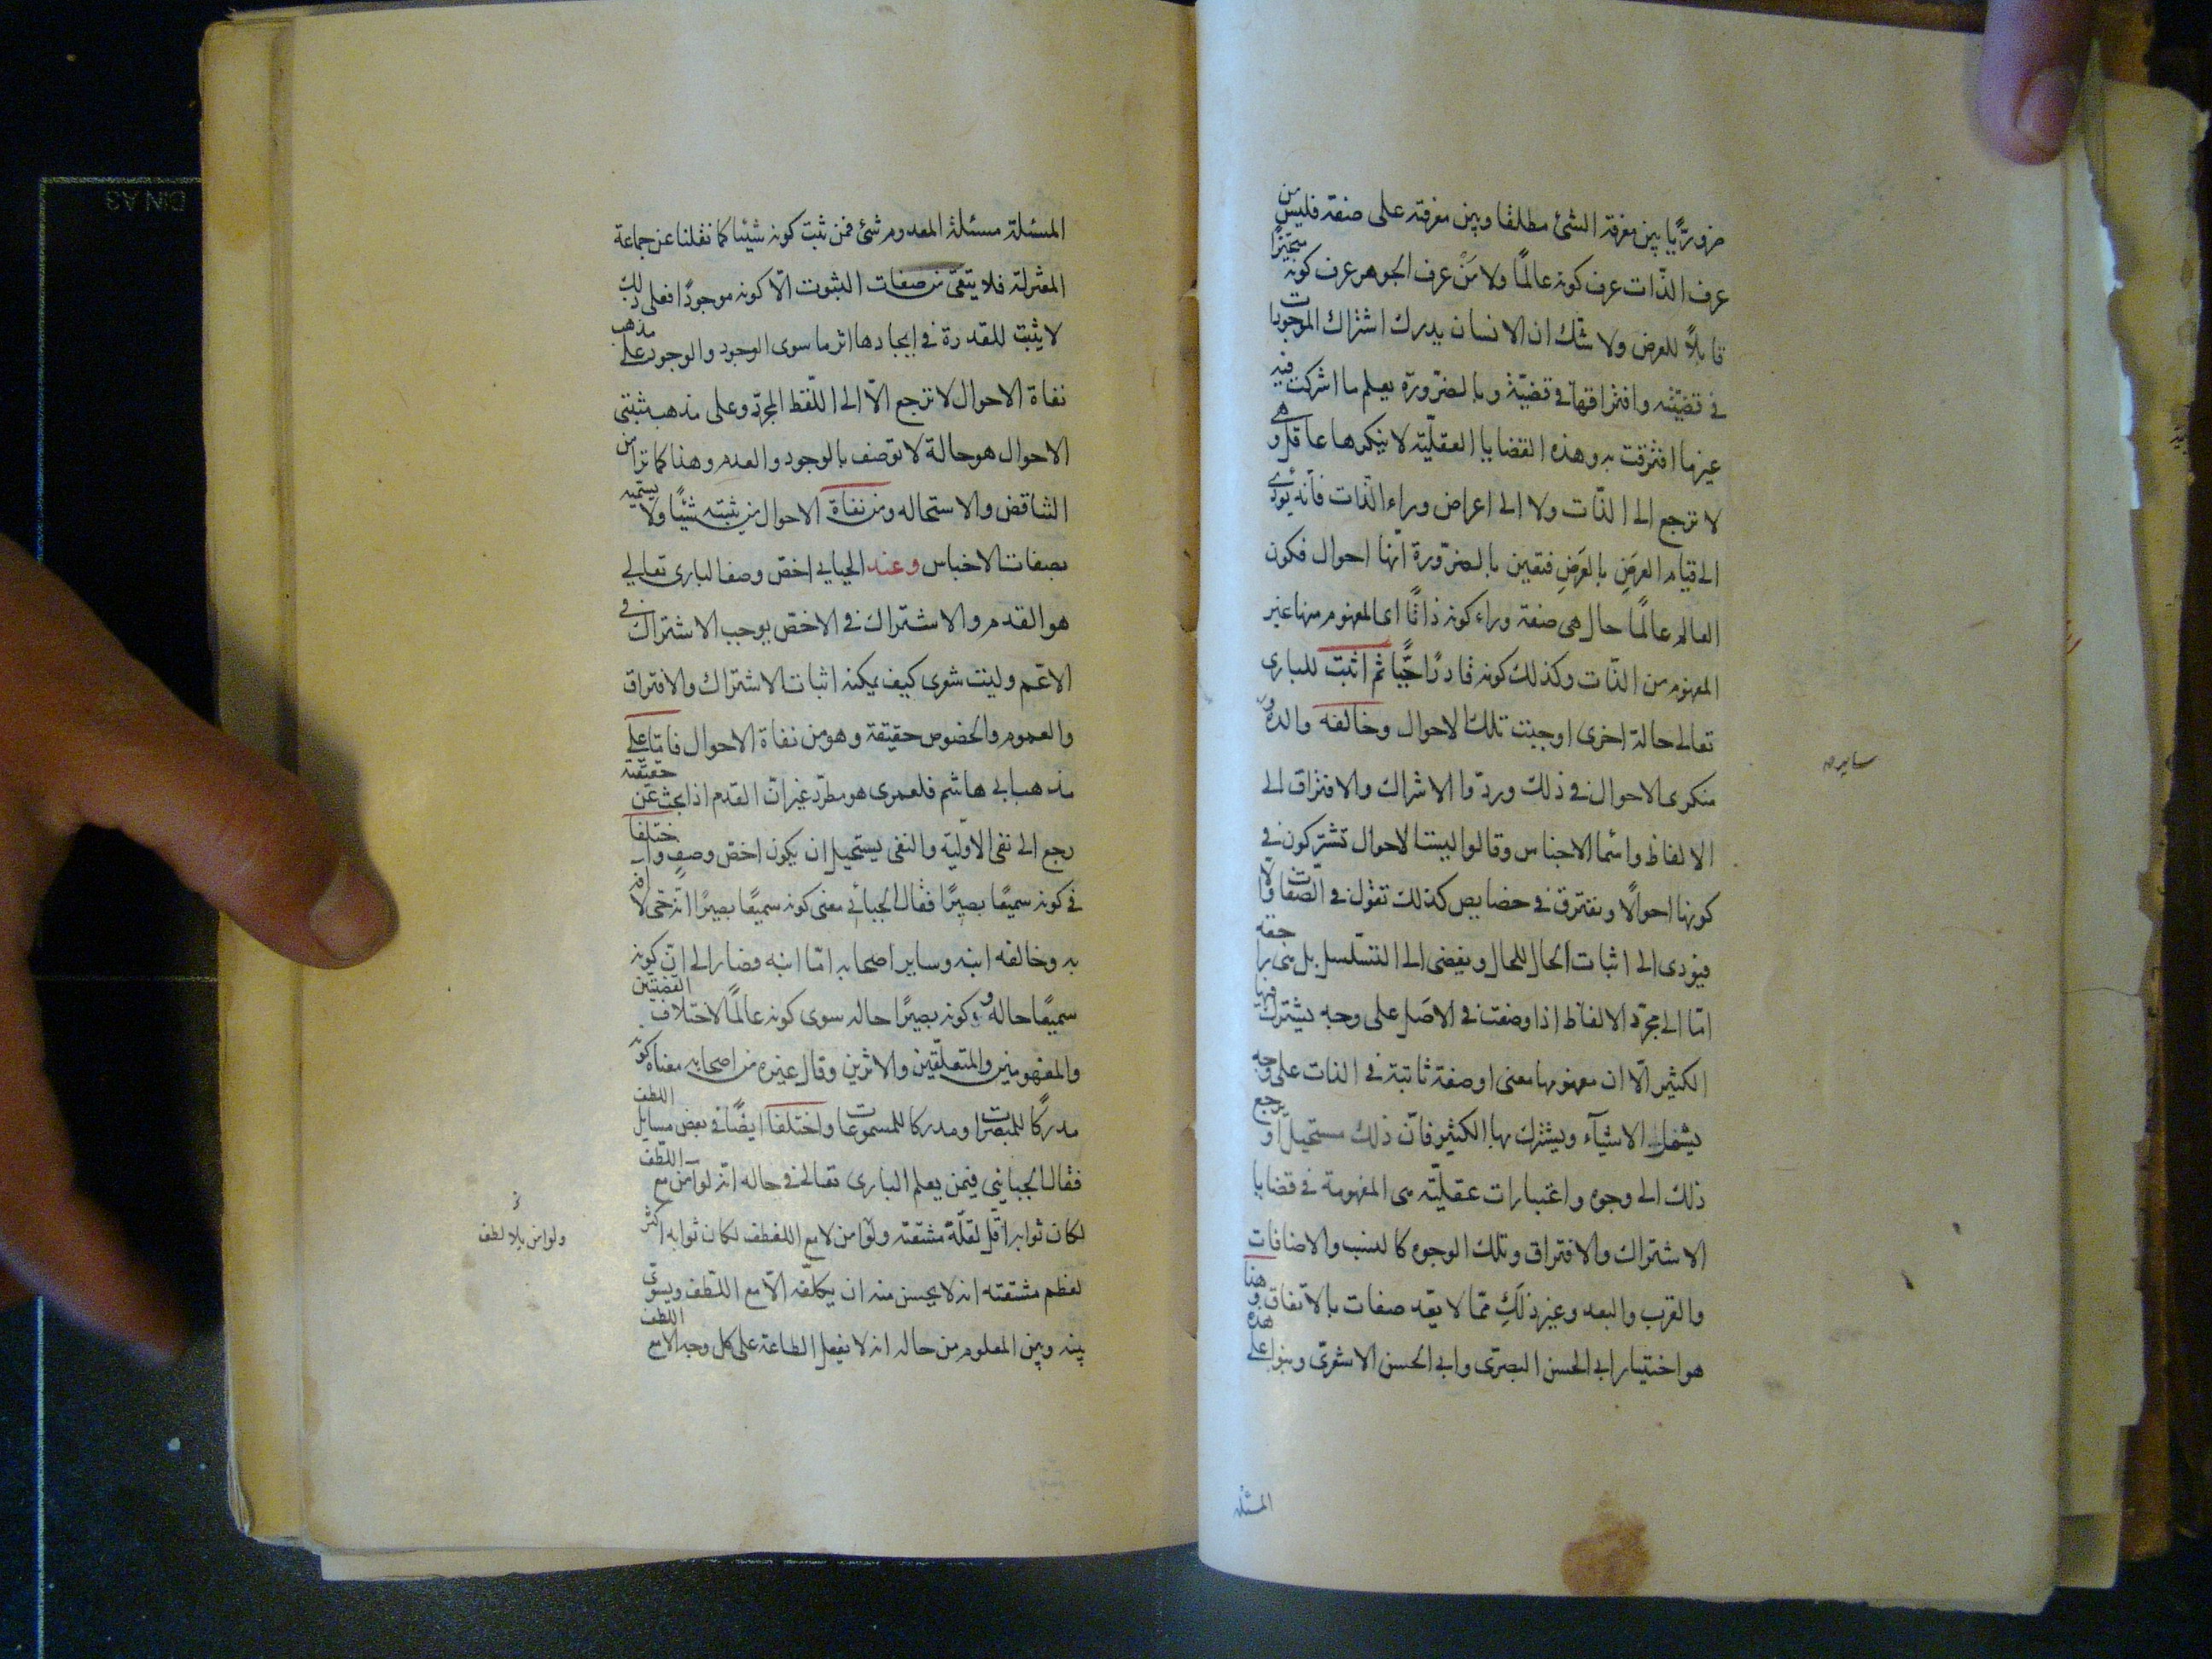 ضروريًّا بين معرفة الشئ مطلقا وبين معرفته على صفة فليس من
عرف الذات عرف كونه عالمًا ولا مَنْ عرف الجوهر عرف كونه متحيزًا
قابلًا للعرض ولا شك ان الانسان يدرك اشتراك الموجودات
في قضيّته وافتراقها في قضيّة وبالضرّورة يعلم ما اشتركت فيه
غير ما افترقت به وهذه القضايا العقليّة لا ينكرها عاقل وهي
لا ترجع الى الذّات ولا الى اعراض وراء الذّات فانّه يؤدّي
الى قيام العرَضِ بالعرَضِ فتعين بالضرّورة انّها احوال فكون
العالم عالمًا حال هي صفة وراء كونه ذاتًا اى المفهوم منها غير
المفهوم من الذّات وكذلك كونه قادرًا حيًّا ثم اثبت للبارى
تعالى حالة اخرى اوجبت تلك الاحوال وخالفه والده و
سايره
منكرى الاحوال في ذلك وردّوا الاشتراك والافتراق الى
الالفاظ واسما الاجناس وقالوا ليست الاحوال تشتركون في
كونها احوالًا ويفترق في خصايص كذلك نقول في الصّفات والّا
فيؤدى الى اثبات الحال للحال ويفضى الى التسّلسل بل هي راجعه
امّا الى مجرّد الالفاظ اذا وضعت في الاصَل على وجه يشترك فيها
الكثير الّا ان مفهومها معنى او صفة ثابتة في الذات على وجه
يشمل الاشيآء ويشترك بها الكثير فانّ ذلك مستحيل او يرجع
ذلك الى وجوه واعتبارات عقليّة هي المفهومة في قضايا
الاشتراك والافتراق وتلك الوجوه كالنسب والاضافات
والقرب والبعد وغير ذلَكِ ممّا لا يعّد صفات بالاتّفاق وهذا
هو اختيار ابى الحسن البصرّى وابى الحسن الاشعرّى وبنوا على هذه
المسئلة
المسئلة مسئلة المعدوم شئ فمن ثبت كونه شيئا كما نقلنا عن جماعة
المعتزلة فلا يبقى من صفات الثبوت الّا كونه موجودًا فعلى ذلك
لا يثبت للقدرة في ايجادها اثر ما سوى الوجود والوجود على مذهب
نفاة الاحوال لا ترجع الّا الى اللّفظ المجرّد وعلى مذهب مثبتى
الاحوال هو حالة لا توصف بالوجود والعدم وهذا كما ترا من
التناقض والاستحاله ومن نفاة الاحوال من يثبته شيئًا ولا يسمّيه
بصفات الاجناس وعند الجبايي اخصّ وصف البارى تعالى
هو القدم والاشتراك في الاخصّ يوجب الاشتراك في
الاعّم وليت شعرى كيف يمكنه اثبات الاشتراك والافتراق
والعموم والخصوص حقيقة وهو من نفاة الاحوال فامّا على
مذهب ابى هاشم فلعمرى هو مطرّد غير انّ القدم اذا بحث عن حقيقته
رجع الى نفى الاوّلية والنفى يستحيل ان يكون اخصّ وصفٍ واختلفا
في كونه سميعًا بصيرًا فقال الجبائي معنى كونه سميعًا بصيرًا انّه حىّ لا افة
به وخالفه ابنه وساير اصحابه امّا ابنه فصار الى انّ كونه
سميعًا حالة وكونه بصيرًا حاله سوى كونه عالمًا لاختلاف القضيتين
والمفهومين والمتعلّقين والاثرين وقال غيره من اصحابه معناه كونه
مدركًا للمبصرات ومدركا للمسموعات واختلفا ايضًا في بعض مسايل اللطف
فقال الجبايّي فيمن يعلم البارى تعالى في حاله انّه لو آمن مع اللّطف
لكان ثوابه اقّل لقلّة مشقته ولو آمن لا مع اللفطف لكان ثوابه اكثر
ولو امن بلا لطف
لعظم مشقته انه لا يحسن منه ان يكلفّه الّا مع اللّطف ويسوّى
بينه وبين المعلوم من حاله انه لا يفعل الطاعة على كل وجه الّا مع اللطف